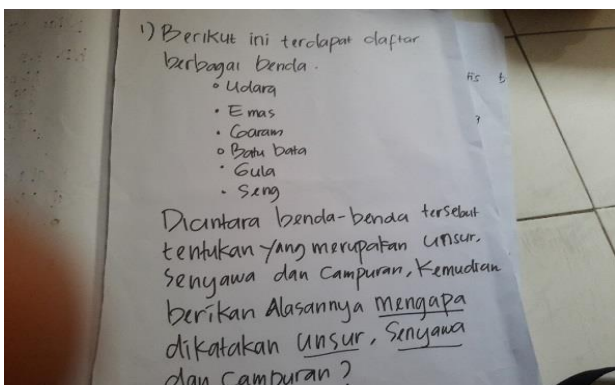 1) Berikut ini terdapat daftar
berbagai benda.
• Udara
• Emas
• Garam
• Batu bata
• Gula
• Seng
Diantara benda-benda tersebut
tentukan yang merupakan unsur,
Senyawa dan Campuran, Kemudian
berikan Alasannya mengapa
dikatakan unsur, Senyawa
dan Campuran?